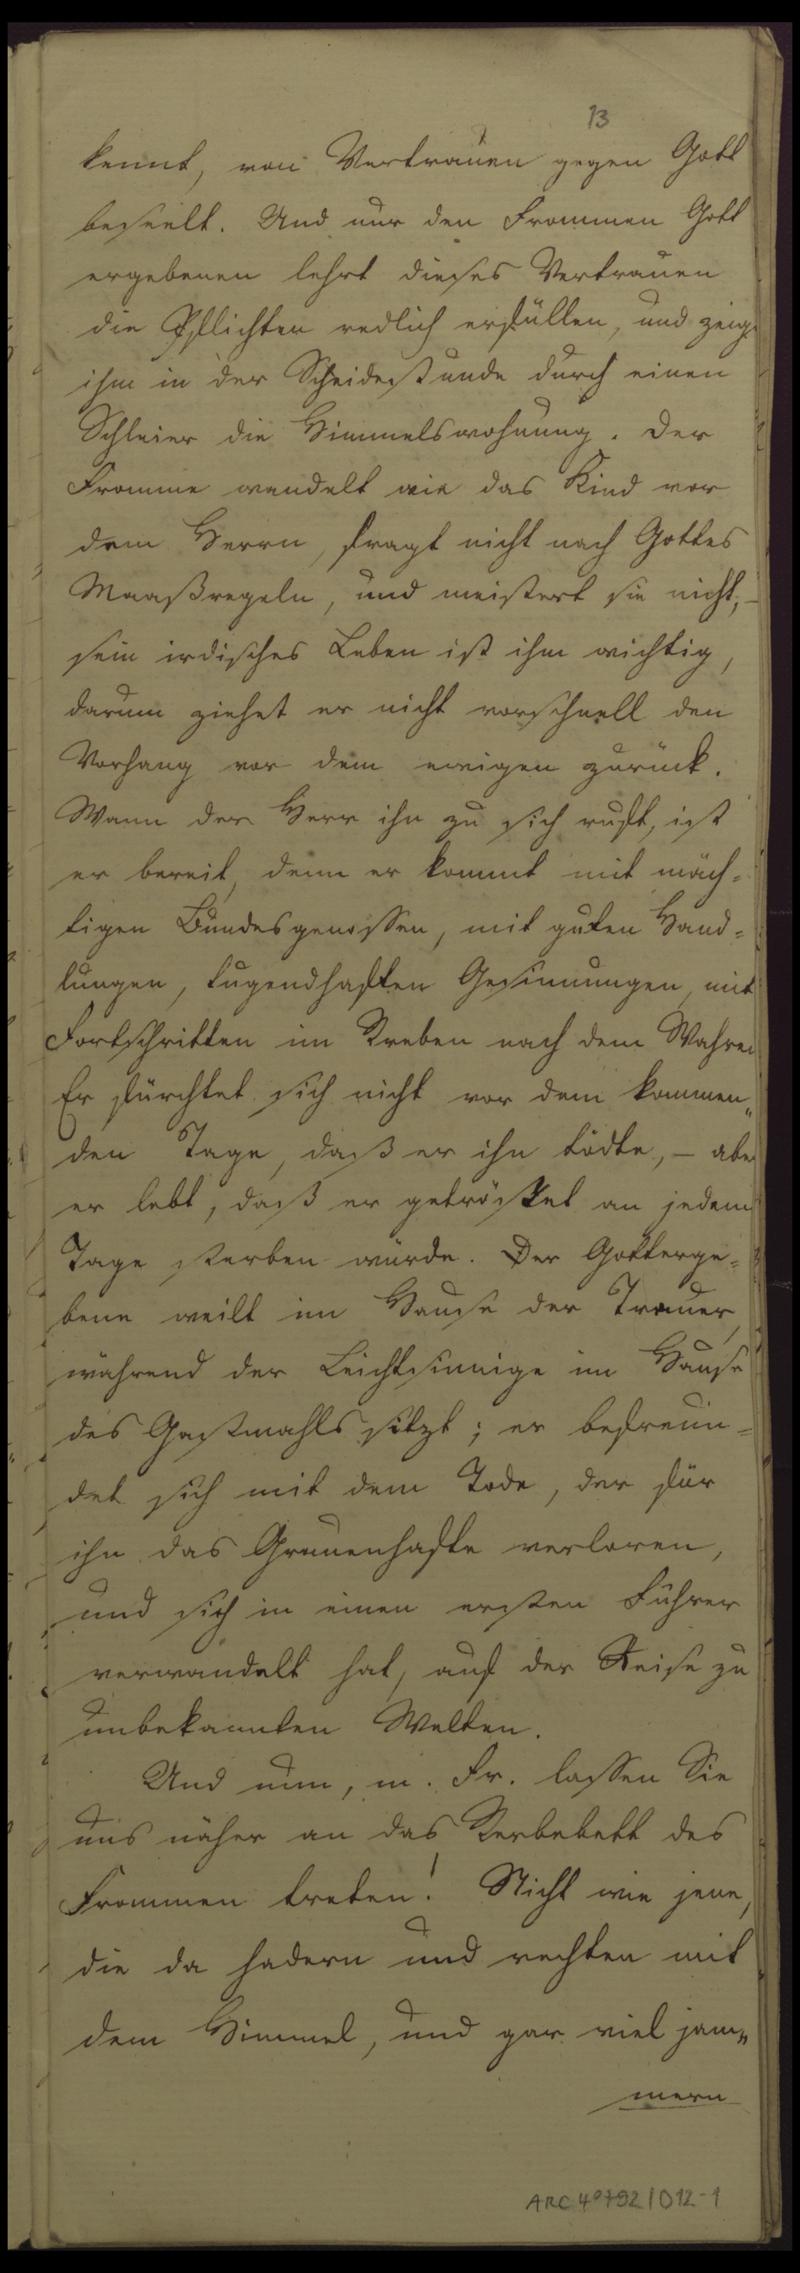 13
kennt, von Vertrauen gegen Gott
beseelt. Und nur den Frommen Gott
ergebenen lehrt dieses Vertrauen
die Pflichten redlich erfüllen, und zeig
ihm in der Scheidestunde durch einen
Schleier die Himmelswohnung. Der
Fromme wandelt wie das Kind vor
dem Herrn, fragt nicht nach Gottes
Maaßregeln, und meistert sie nicht, –
sein irdisches Leben ist ihm wichtig,
darum ziehet er nicht vorschnell den
Vorhang vor dem ewigen zurück.
Wann der Herr ihn zu sich ruft, ist
er bereit, denn er kommt mit mäch=
tigen Bundesgenossen, mit guten Hand=
lungen, tugendhaften Gesinnungen, mit
Fortschritten im Streben nach dem Wahren
Er fürchtet sich nicht vor dem kommen„
den Tage, daß er ihn tödte, – aber
er lebt, daß er getröstet an jedem
Tage sterben würde. Der Gotterge=
bene weilt im Hause der Trauer,
während der Leichtsinnige im Hause
des Gastmahls sitzt; er befreun=
det sich mit dem Tode, der für
ihn das Grauenhafte verloren,
und sich in einen ersten Führer
verwandelt hat, auf der Reise zu
unbekannten Welten.
Und nun, m. Fr. lassen Sie
uns näher an das Sterbebett des
Frommen treten! Nicht wie jene,
die da hadern und rechten mit
dem Himmel, und gar viel jam„
mern
ARC 4° 792/D12-1